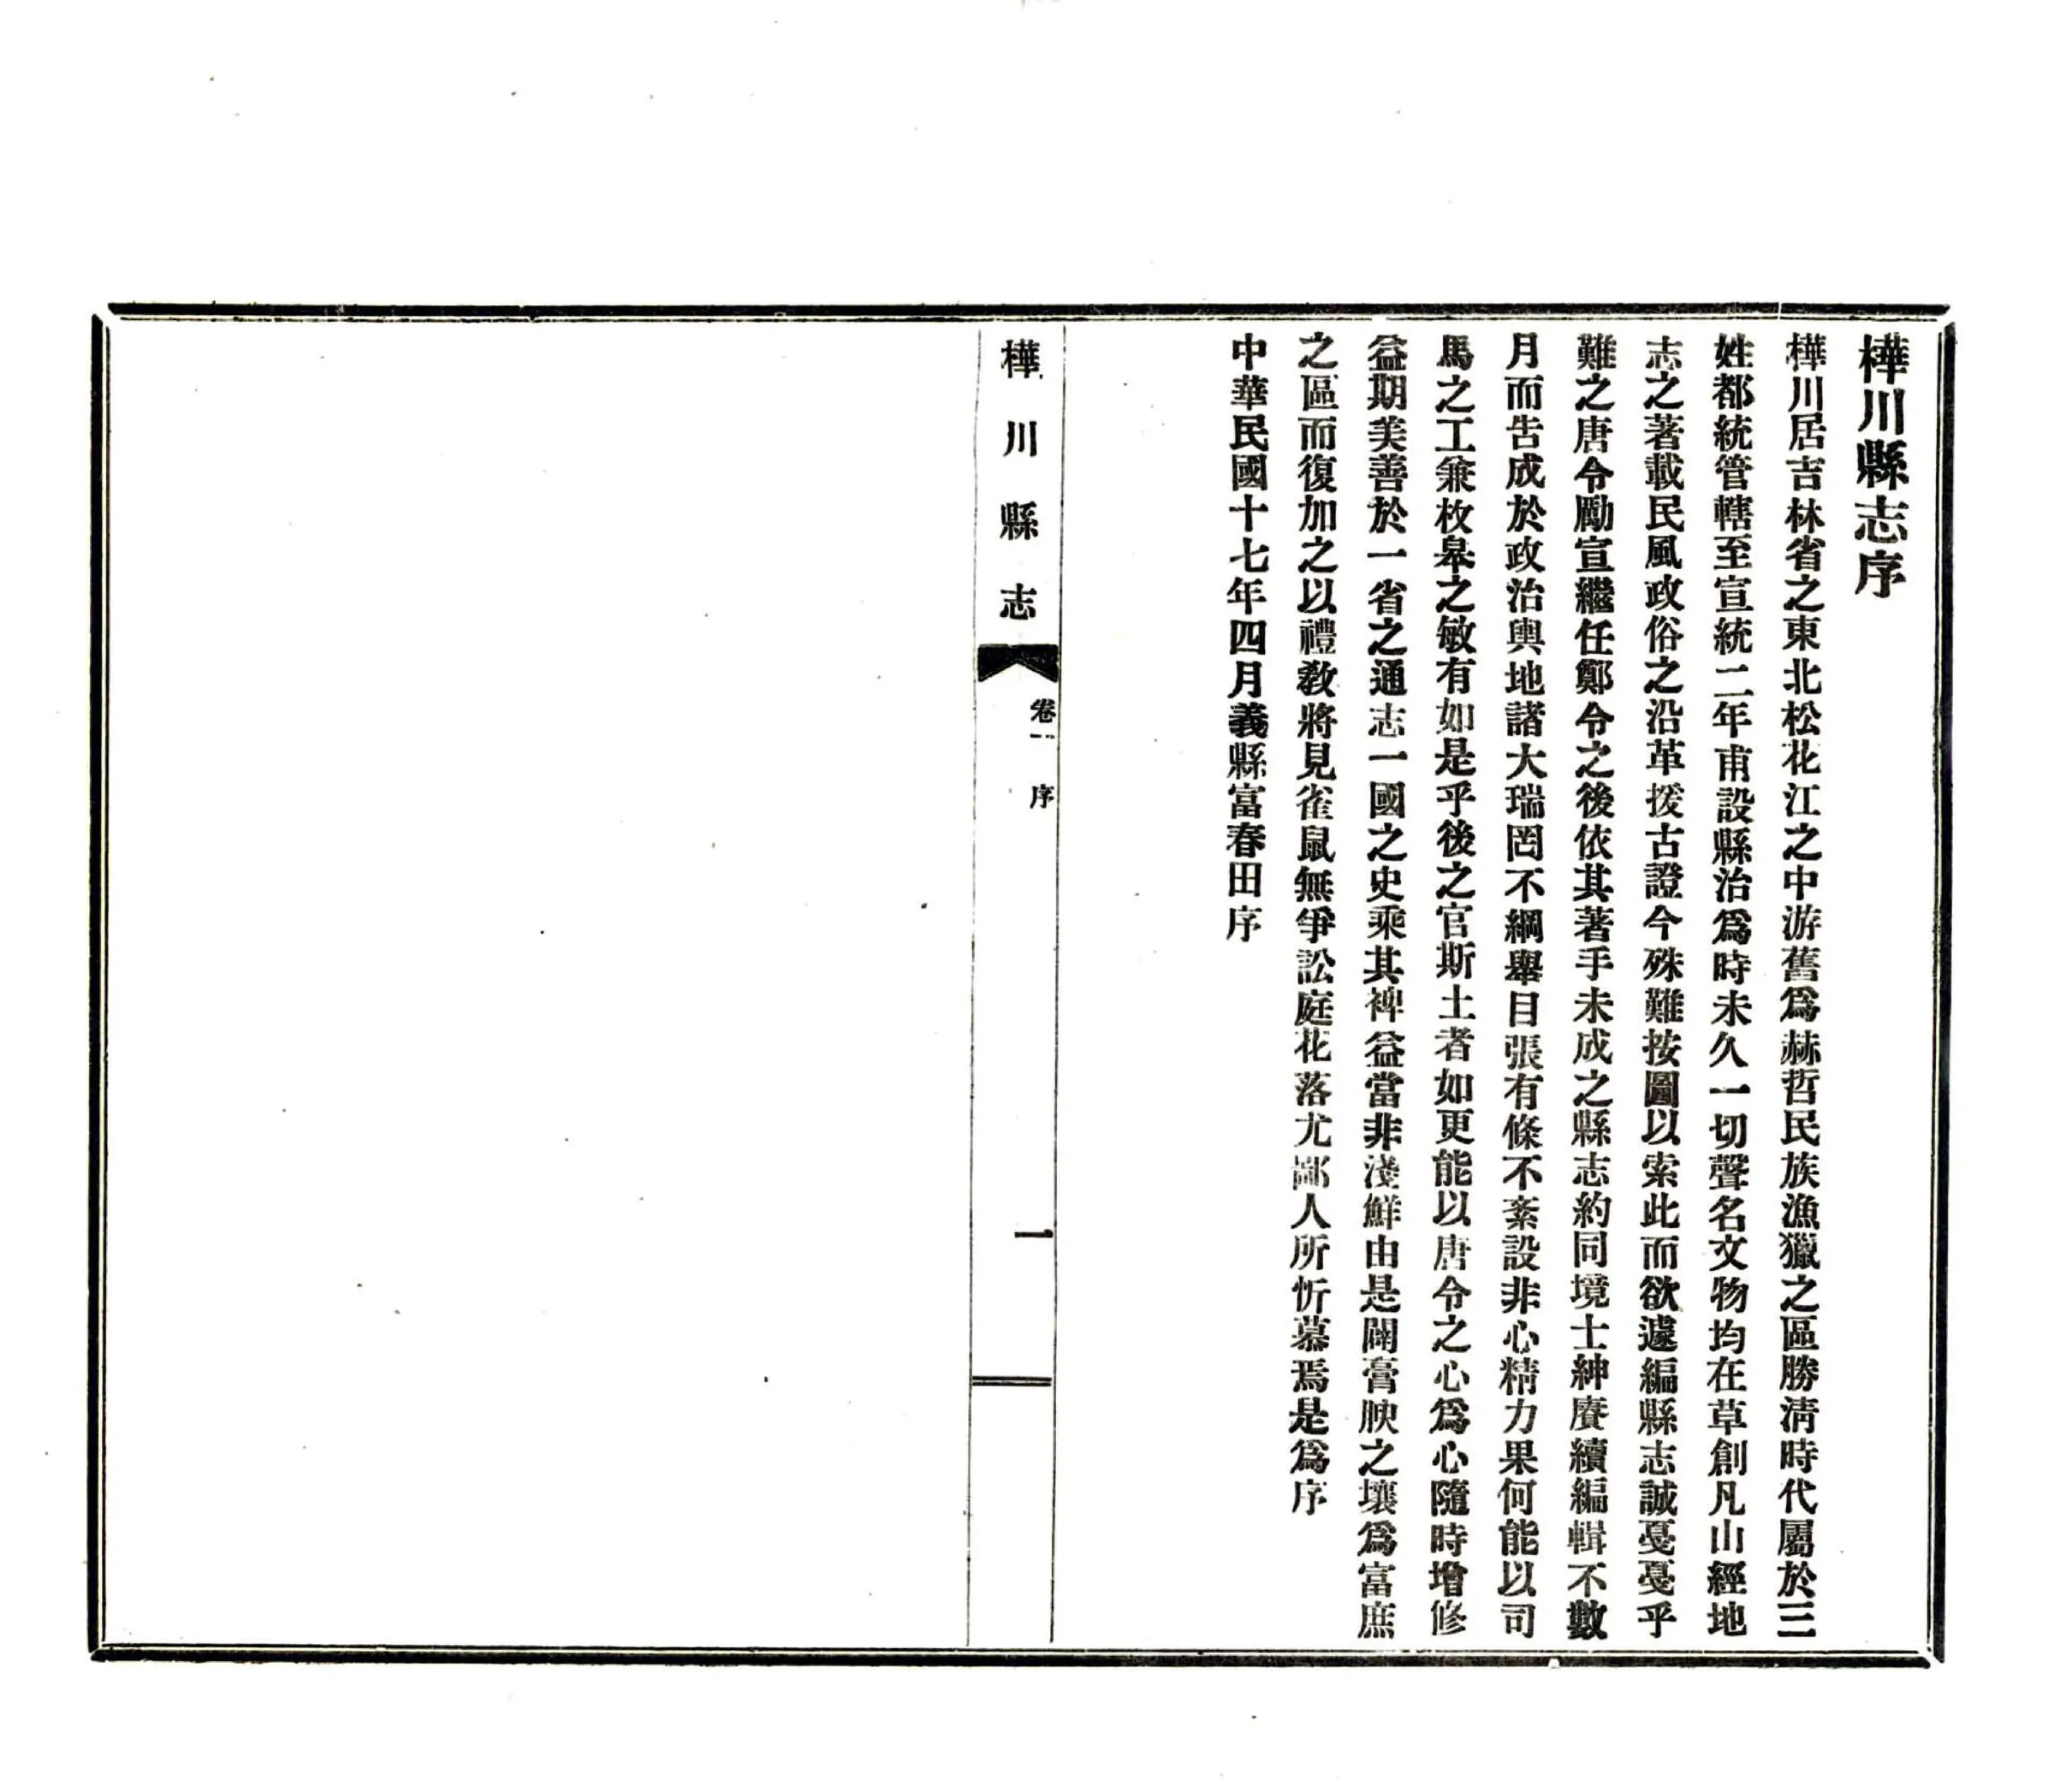 樺川縣志序
樺川居吉林省之東北松花江之中游舊爲赫哲民族漁獵之區勝清時代屬於三
姓都統管轄至宣統二年甫設縣治爲時未久一切聲名文物均在草創凡山經地
志之著載民風政俗之沿革援古證今殊難按圖以索此而欲遽編縣志誠戞戞乎
難之唐令勵宣繼任鄭令之後依其著手未成之縣志約同境士紳賡續編輯不數
月而告成於政治輿地諸大瑞罔不綱舉目張有條不紊設非心精力果何能以司
馬之工兼枚皋之敏有如是乎後之官斯土者如更能以唐令之心爲心隨時增修
益期美善於一省之通志一國之史乘其裨益當非淺鮮由是闢膏腴之壤爲富庶
之區而復加之以禮敎將見雀鼠無爭訟庭花落尤鄙人所忻慕焉是爲序
中華民國十七年四月義縣富春田序
樺川縣志
卷一 序
一